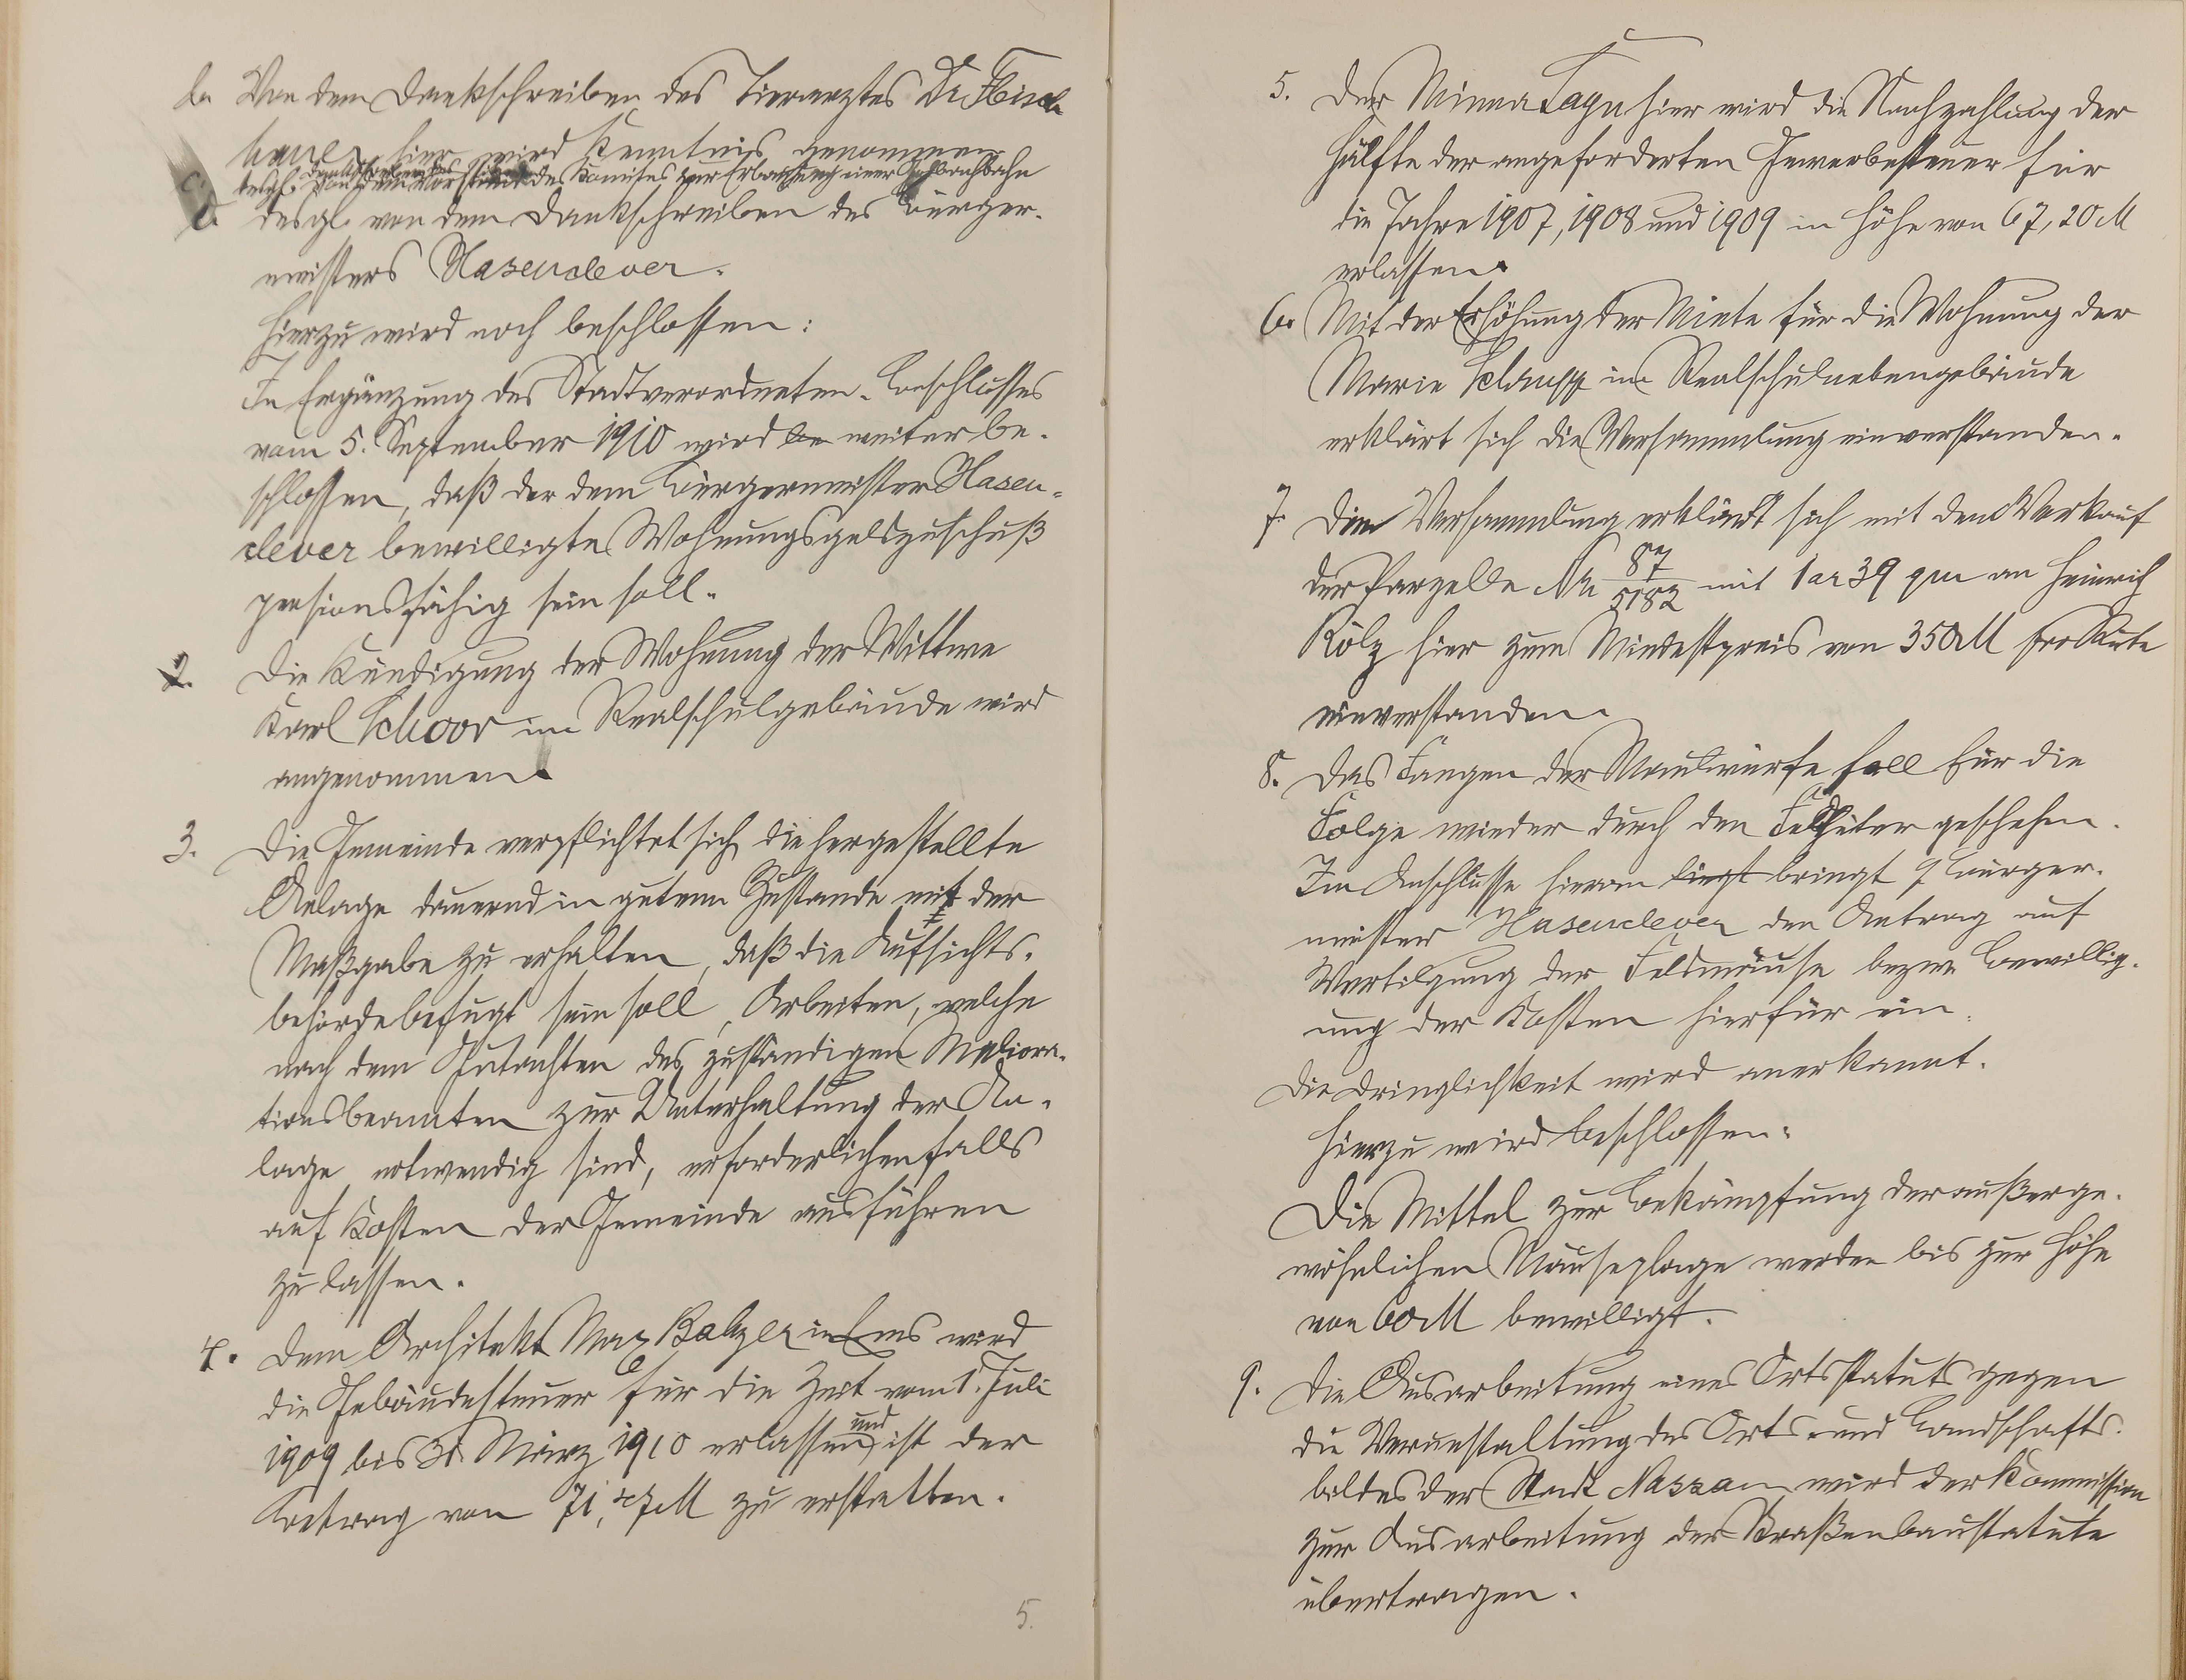 b. Von dem Dankschreiben des Tierarztes Dr. Fisch
bauer hier wird Kenntnis genommen
c. desgl. von dem Dankschreiben des Vorstands des Komitees zur Erbauung einer bahn
d. desgl. von dem Dankschreiben des Bürger-
meisters Hasenclever.
Hierzu wird noch beschlossen:
In Ergänzung des Stadtverordneten-Beschlusses
vom 5. September 1910 wird be weiter be-
schlossen, daß der dem Bürgermeister Hasen-
clever bewilligte Wohnungsgeldzuschuß
pensionsfähig sein soll.
2. Die Kündigung der Wohnung der Wittwe
Karl Schoor im Realschulgebäude wird
angenommen.
3. Die Gemeinde verpflichtet sich, die hergestellte
Anlage dauernd in gutem Zustande mit der
Maßgabe zu erhalten, daß die Aufsichts-
behörde befugt sein soll, Arbeiten, welche
nach dem Gutachten des zuständigen Meliora-
tionsbeamten zur Unterhaltung der An-
lage notwendig sind, erforderlichenfalls
auf Kosten der Gemeinde ausführen
zu lassen.
4. Dem Architekt Max Balzer in Ems wird
die Gebäudesteuer für die Zeit vom 1. Juli
1909 bis 31 März 1910 erlassen und ist der
Betrag von 71,47 M zu erstatten.
5.
5. Der Minna Tayn hier wird die Nachzahlung der
Hälfte der angeforderten Gewerbesteuer für
die Jahre 1907, 1908 und 1909 in Höhe von 67,20 M
erlassen.
6. Mit der Erhöhung der Miete für die Wohnung der
Marie Schrupp im Realschulnebengebäude
erklärt sich die Versammlung einverstanden.
7. Die Versammlung erklärt sich mit dem Verkauf
der Parzelle No 87/5182 mit 1 ar 39 qm an Heinrich
Kölz hier zum Mindestpreis von 350 M pro Rute
einverstanden.
8. Das Fangen der Maulwürfe soll für die
Folge wieder durch den Feldhüter geschehen.
Im Anschlusse hieran liegt bringt H Bürger-
meister Hasenclever den Antrag auf
Vertilgung der Feldmäuse bezw. Bewillig-
ung der Kosten hierfür ein.
Die Dringlichkeit wird anerkannt.
Hierzu wird beschlossen:
Die Mittel zur Bekämpfung der außerge-
wöhnlichen Mäuseplage werden bis zur Höhe
von 60 M bewilligt.
9. Die Ausarbeitung eines Ortsstatuts gegen
die Verunstaltung des Orts- und Landschafts-
bildes der Stadt Nassau wird der Kommission
zur Ausarbeitung der Straßenbaustatute
übertragen.